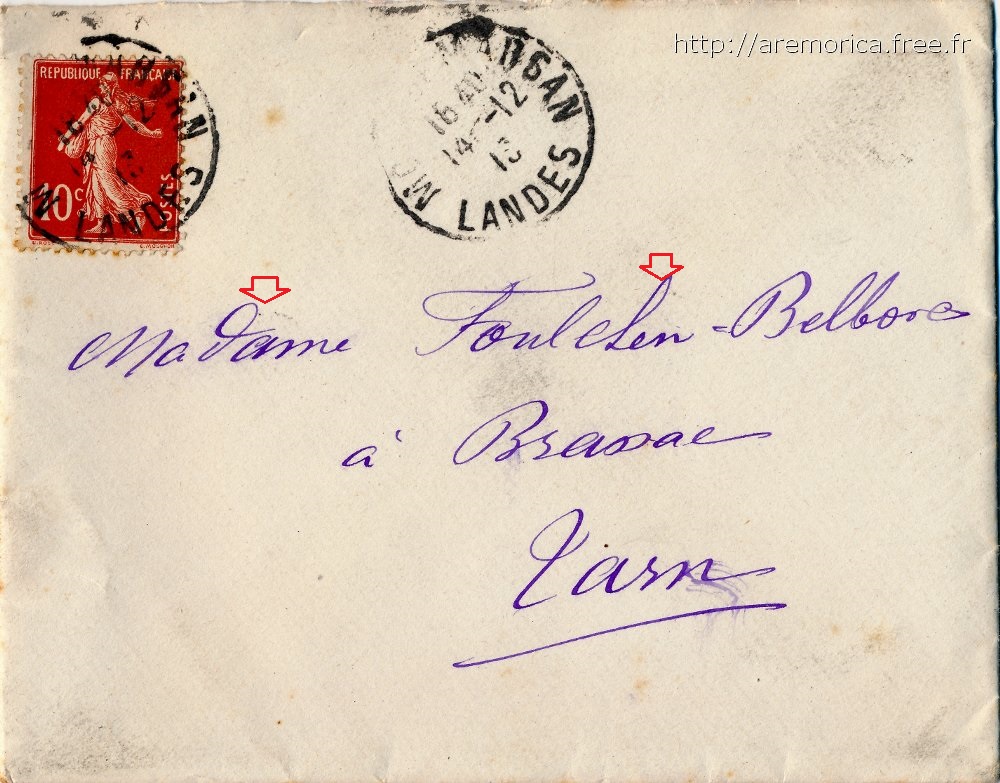 http://aremorica.free.fr
REPUBLIQUE FRANCAISE
10c
POSTES
MARSAN
16 40
14 -12
13
LANDES
Madame Foulchen-Belbore
à Brassac
Tarn